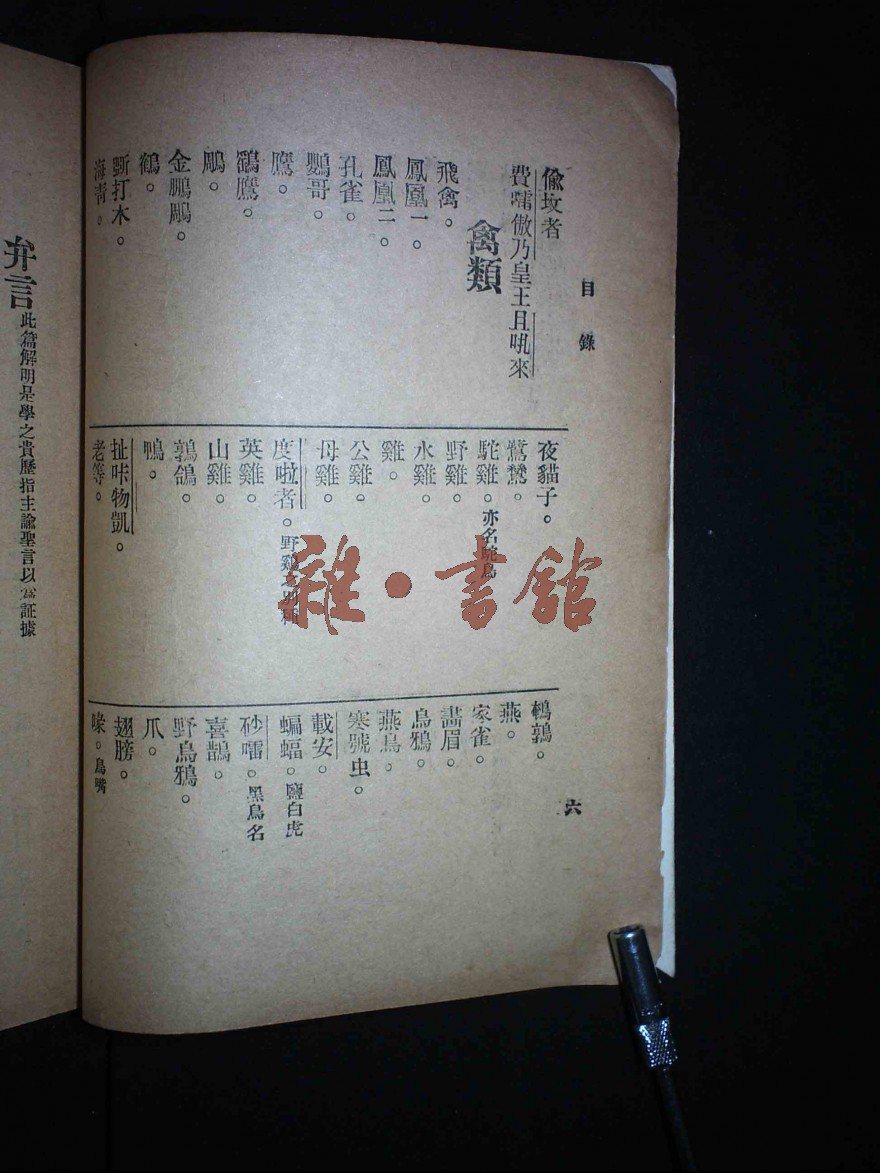 目錄
六
偸坟者
費嚅傲乃皇王且吼來
禽類
飛禽。
鳳凰一。
鳳凰二。
孔雀。
鸚哥。
鷹。
鷂鷹。
鵰。
金鵬鵰。
鶴。
鷳打木。
海青。
夜貓子。
駝雞。亦名駝鳥
野雞。
水雞。
雞。
公雞。
母雞。
度啦者。野鷄之別種
英雞。
山雞。
鵓鴿。
鴨。
扯咔物凱。
老等。
鵪鶉。
燕。
家雀。
畵眉。
烏鴉。
燕鳥。
寒號虫。
載安。
蝙蝠。鹽白虎
砂嚅。黑鳥名
喜鵲。
野烏鴉。
爪。
翅膀。
鳥嘴
弁言
此篇解明是學之貴歷指主諭聖言以爲証據
雜·書館